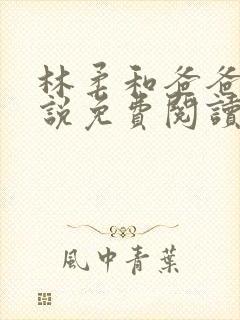 林柔和爸爸
說免費閱讀
風中青葉